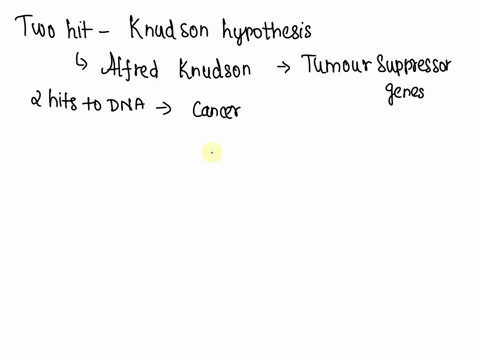 Two hit - Knudson hypothesis
↳ Alfred Knudson → Tumour suppressor genes
2 hits to DNA → Cancer